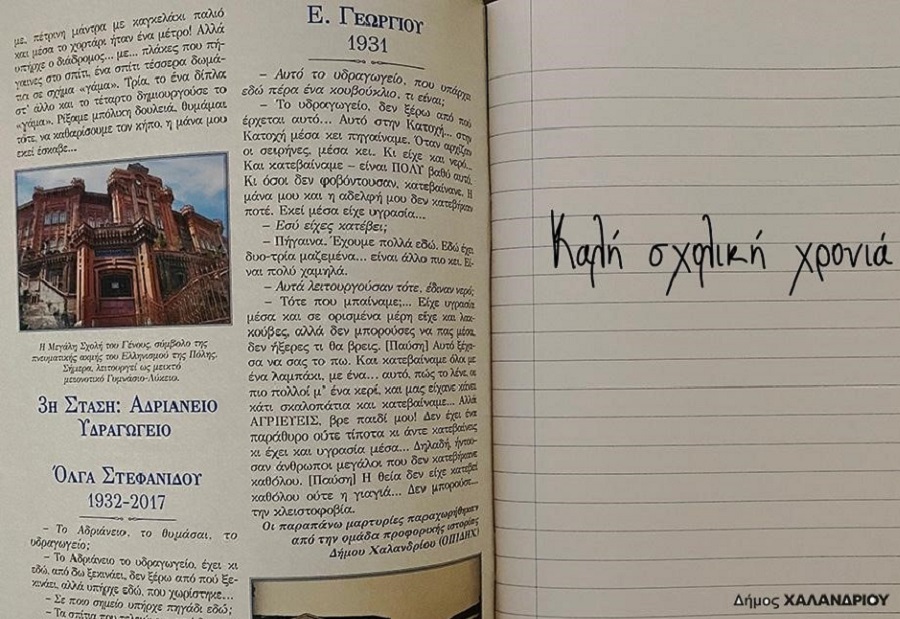 με, πέτρινη μάντρα με καγκελάκι παλιό
και μέσα το χορτάρι ήταν ένα μέτρο! Αλλά
υπήρχε ο διάδρομος... με... πλάκες που πή-
γαινες στο σπίτι, ένα σπίτι τέσσερα δωμά-
τια σε σχήμα «γάμα». Τρία, το ένα δίπλα
στ' άλλο και το τέταρτο δημιουργούσε το
«γάμα». Ρίξαμε μπόλικη δουλειά, θυμάμαι
τότε, να καθαρίσουμε τον κήπο, η μάνα μου
εκεί έσκαβε...
Η Μεγάλη Σχολή του Γένους, σύμβολο της
πνευματικής ακμής του Ελληνισμού της Πόλης.
Σήμερα, λειτουργεί ως μεικτό
μειονοτικό Γυμνάσιο-Λύκειο.
3η Στάση: Αδριάνειο
Υδραγωγείο
Όλγα Στεφανίδου
1932-2017
– Το Αδριάνειο, το θυμάσαι, το
υδραγωγείο;
– Το Αδριάνειο το υδραγωγείο, έχει κι
εδώ, από δω ξεκινάει, δεν ξέρω από πού ξε-
κινάει, αλλά υπήρχε εδώ, που χωρίστηκε...
– Σε ποιο σημείο υπήρχε πηγάδι εδώ;
– Τα σπίτια του
Ε. Γεωργίου
1931
– Αυτό το υδραγωγείο, που υπάρχει
εδώ πέρα ένα κουβούκλιο, τι είναι;
– Το υδραγωγείο, δεν ξέρω από πού
έρχεται αυτό... Αυτό στην Κατοχή... στην
Κατοχή μέσα κει πηγαίναμε. Όταν αρχίζαν
οι σειρήνες, μέσα κει. Κι είχε και νερό...
Και κατεβαίναμε – είναι ΠΟΛΥ βαθύ αυτό.
Κι όσοι δεν φοβόντουσαν, κατεβαίνανε. Η
μάνα μου και η αδελφή μου δεν κατεβήκαν
ποτέ. Εκεί μέσα είχε υγρασία...
– Εσύ είχες κατέβει;
– Πήγαινα. Έχουμε πολλά εδώ. Εδώ έχει
δυο-τρία μαζεμένα... είναι άλλο πιο κει. Εί-
ναι πολύ χαμηλά.
– Αυτά λειτουργούσαν τότε, έδιναν νερό;
– Τότε που μπαίναμε;... Είχε υγρασία
μέσα και σε ορισμένα μέρη είχε και λακ-
κούβες, αλλά δεν μπορούσες να πας μέσα,
δεν ήξερες τι θα βρεις. [Παύση] Αυτό ξέχα-
σα να σας το πω. Και κατεβαίναμε όλα με
ένα λαμπάκι, με ένα... αυτό, πώς το λένε, οι
πιο πολλοί μ' ένα κερί, και μας είχανε κάνει
κάτι σκαλοπάτια και κατεβαίναμε... Αλλά
ΑΓΡΙΕΥΕΙΣ, βρε παιδί μου! Δεν έχει ένα
παράθυρο ούτε τίποτα κι άντε κατεβαίνεις
κι έχει και υγρασία μέσα... Δηλαδή, ήντου-
σαν άνθρωποι μεγάλοι που δεν κατεβήκανε
καθόλου. [Παύση] Η θεία δεν είχε κατεβεί
καθόλου ούτε η γιαγιά... Δεν μπορούσε...
την κλειστοφοβία.
Οι παραπάνω μαρτυρίες παραχωρήθηκαν
από την ομάδα προφορικής ιστορίας
Δήμου Χαλανδρίου (ΟΠΙΔΗΧ)
Καλή σχολική χρονιά
Δήμος ΧΑΛΑΝΔΡΙΟΥ